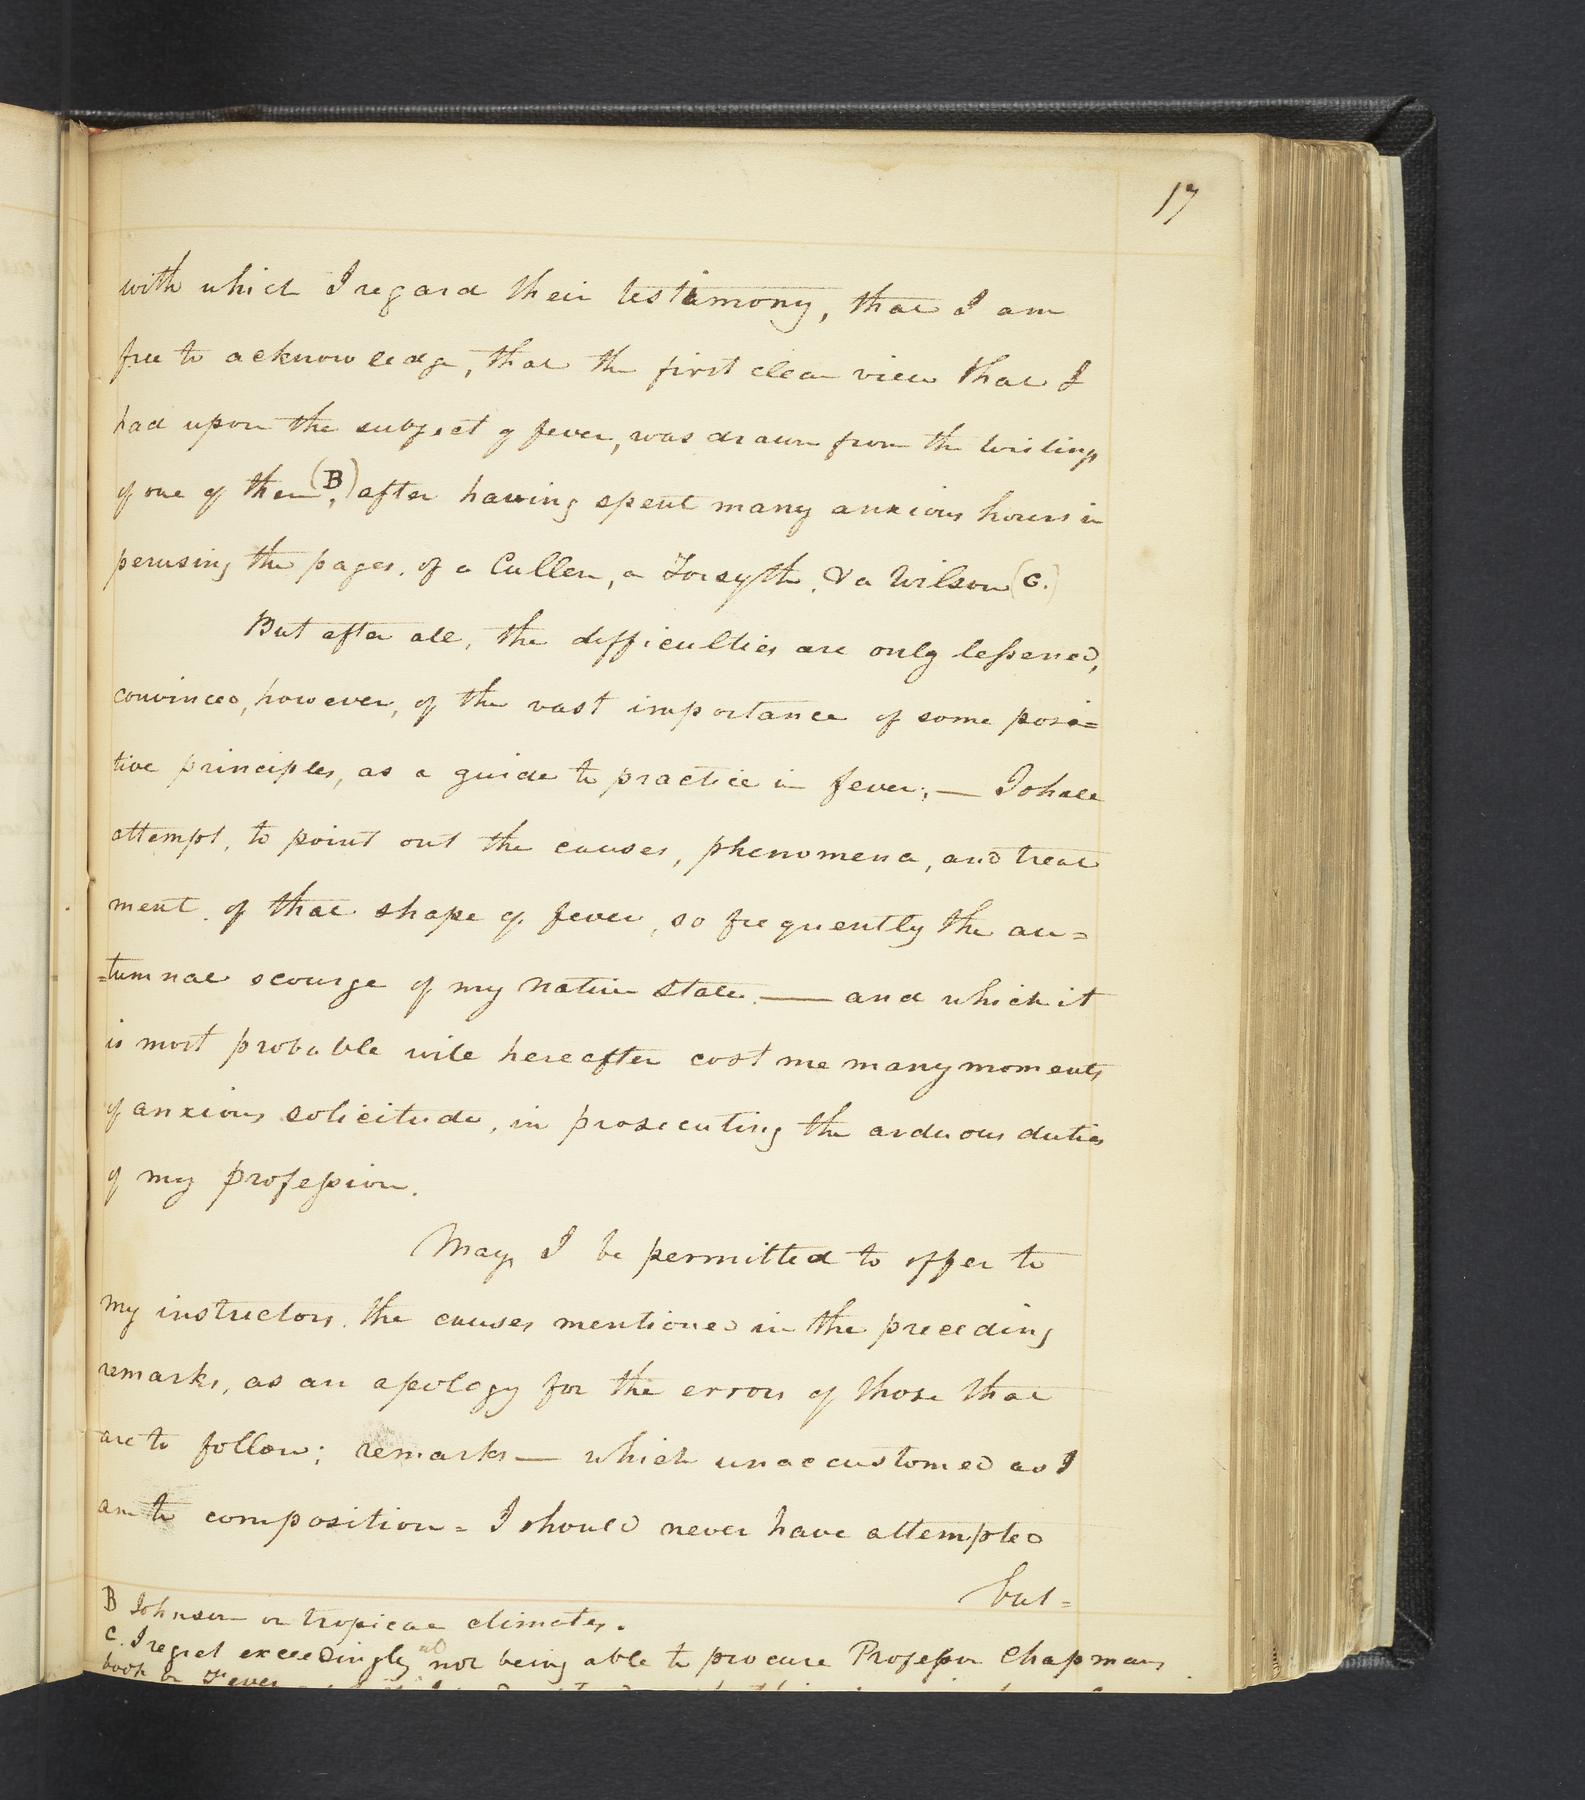 17
with which I regard their testimony, that I am
free to acknowledge, that the first clear view that I
had upon the subject of fever, was drawn from the writings
of one of them (B), after having spent many anxious hours in
perusing the pages, of a Cullen, a Forsyth, & a Wilson (C.)
But after all, the difficulties are only lessened,
convinced, however, of the vast importance of some posi=
tive principles, as a guide to practice in fever; — I shall
attempt, to point out the causes, phenomena, and treat
ment of that shape of fever, so frequently the au=
=tumnal scourge of my native state. — and which it
is most probable will hereafter cost me many moments
of anxious solicitude, in prosecuting the arduous duties
of my profession.
May I be permitted to offer to
my instructors, the causes mentioned in the preceding
remarks, as an apology for the errors of those that
are to follow; remarks — which unaccustomed as I
am to composition = I should never have attempted
but =
B Johnson on tropical climates.
C. I regret exceedingly not being able to procure Professor Chapmans
book on Fever